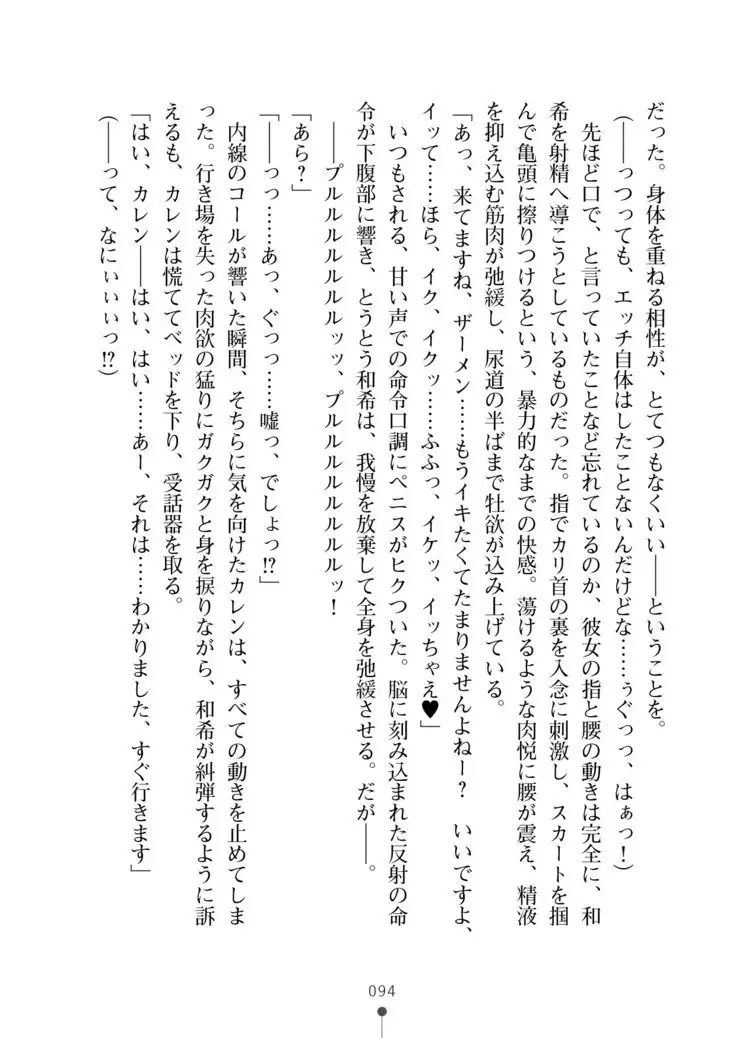 だった。身体を重ねる相性が、とてつもなくいい――ということを。
（――っつっても、エッチ自体はしたことないんだけどな……ぅぐっっ、はぁっ！）
先ほど口で、と言っていたことなど忘れているのか、彼女の指と腰の動きは完全に、和
希を射精へ導こうとしているものだった。指でカリ首の裏を入念に刺激し、スカートを掴
んで亀頭に擦りつけるという、暴力的なまでの快感。蕩けるような肉悦に腰が震え、精液
を抑え込む筋肉が弛緩し、尿道の半ばまで牡欲が込み上げている。
「あっ、来てますね、ザーメン……もうイキたくてたまりませんよねー？　いいですよ、
イッて……ほら、イク、イクッ……ふふっ、イケッ、イッちゃえ♥」
いつもされる、甘い声での命令口調にペニスがヒクついた。脳に刻み込まれた反射の命
令が下腹部に響き、とうとう和希は、我慢を放棄して全身を弛緩させる。だが――。
――プルルルルルルルッッ、プルルルルルルルルッ！
「あら？」
「――っっ……あっ、ぐっっ……嘘っ、でしょっ!?」
内線のコールが響いた瞬間、そちらに気を向けたカレンは、すべての動きを止めてしま
った。行き場を失った肉欲の猛りにガクガクと身を捩りながら、和希が糾弾するように訴
えるも、カレンは慌ててベッドを下り、受話器を取る。
「はい、カレン――はい、はい……あー、それは……わかりました、すぐ行きます」
（――って、なにぃぃぃっ!?）
094